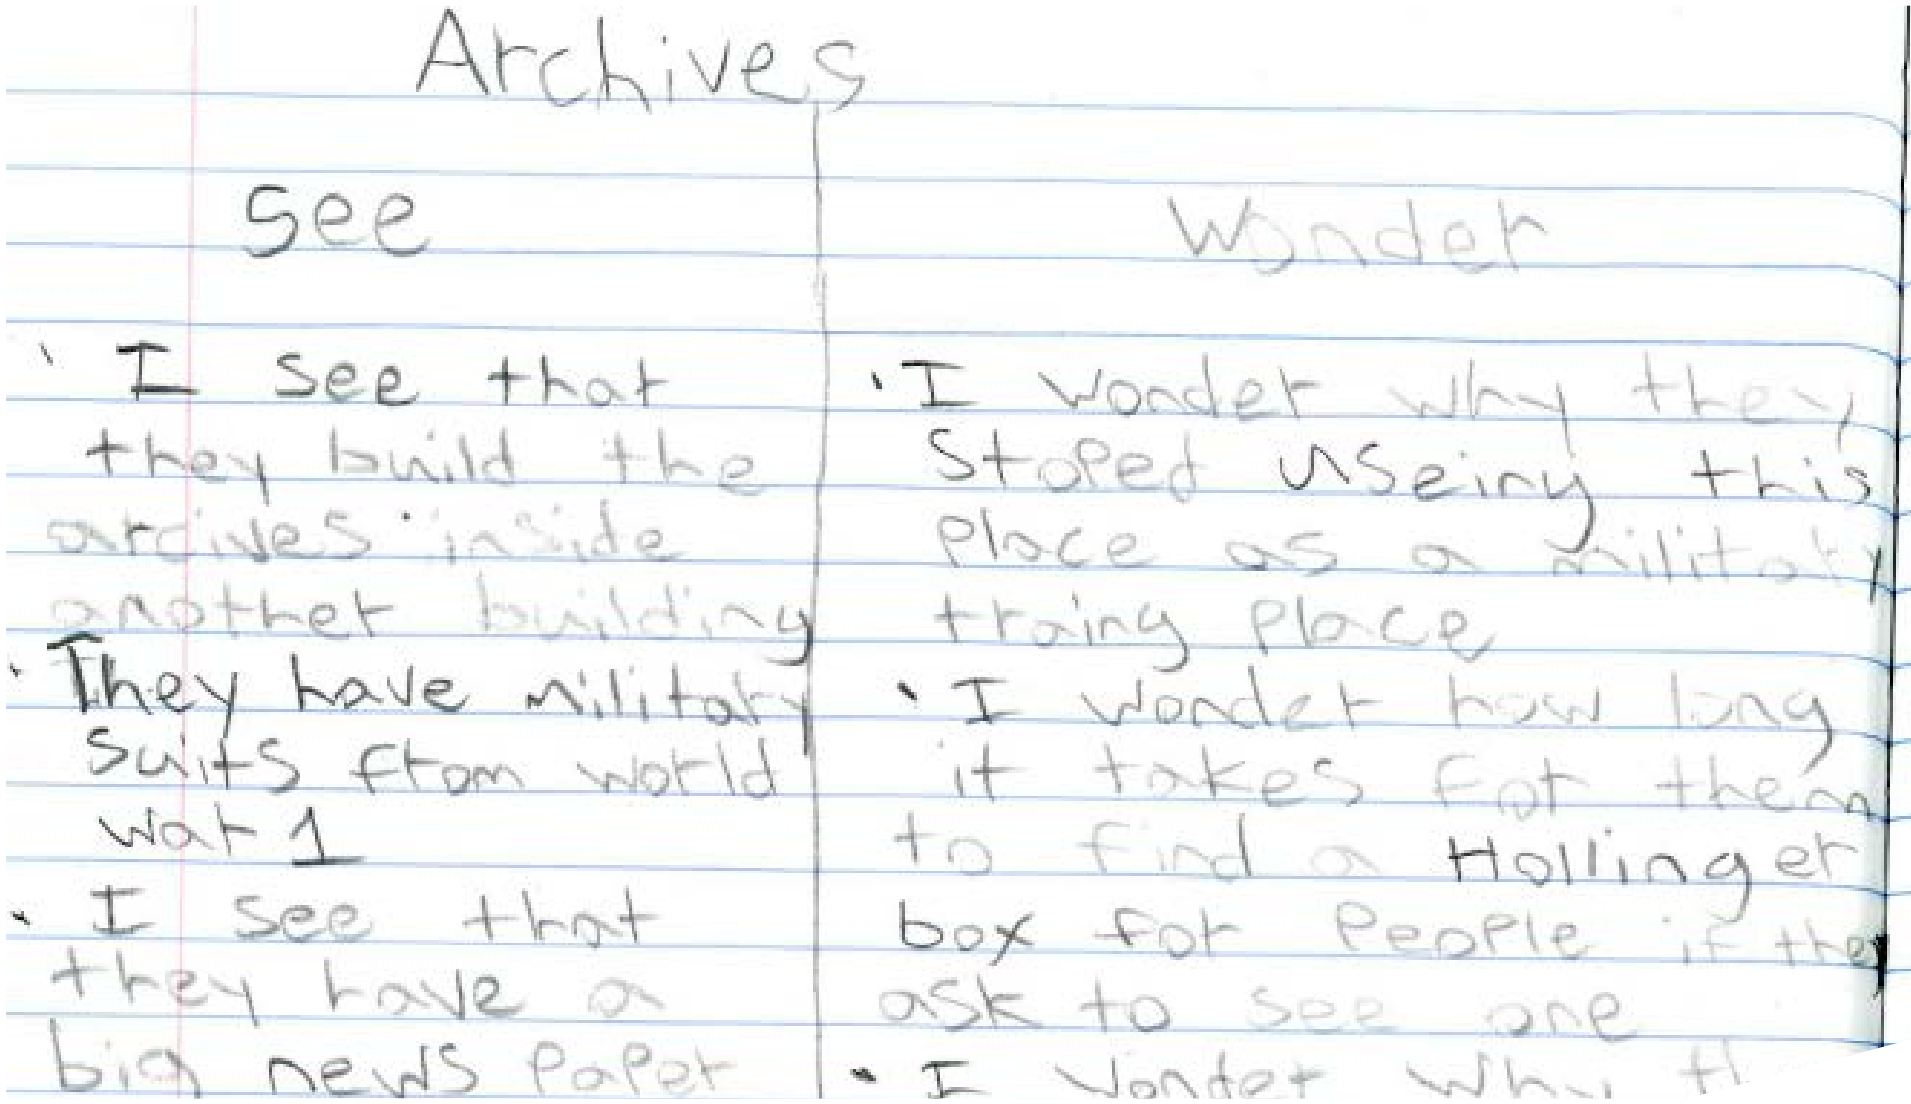 Archives
see
I see that
they build the
arcives inside
another building
They have military
suits from world
war 1
I see that
they have a
big news paper
Wonder
I wonder why they
stoped useing this
place as a military
traing place
I wonder how long
it takes for them
to find a Hollinger
box for people if they
ask to see one
I wonder why